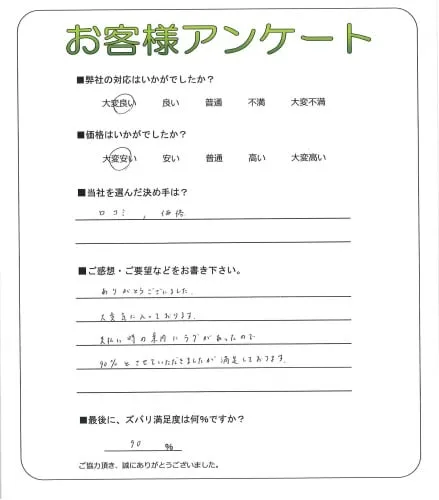 お客様アンケート
■弊社の対応はいかがでしたか?
大変良い 良い 普通 不満 大変不満
■価格はいかがでしたか?
大変安い 安い 普通 高い 大変高い
■当社を選んだ決め手は?
口コミ, 価格
■ご感想・ご要望などをお書き下さい。
ありがとうございました。
大変気に入っております。
支払い時の案内にラグがあったので
90%とさせていただきましたが満足しております。
■最後に、ズバリ満足度は何%ですか?
90 %
ご協力頂き、誠にありがとうございました。